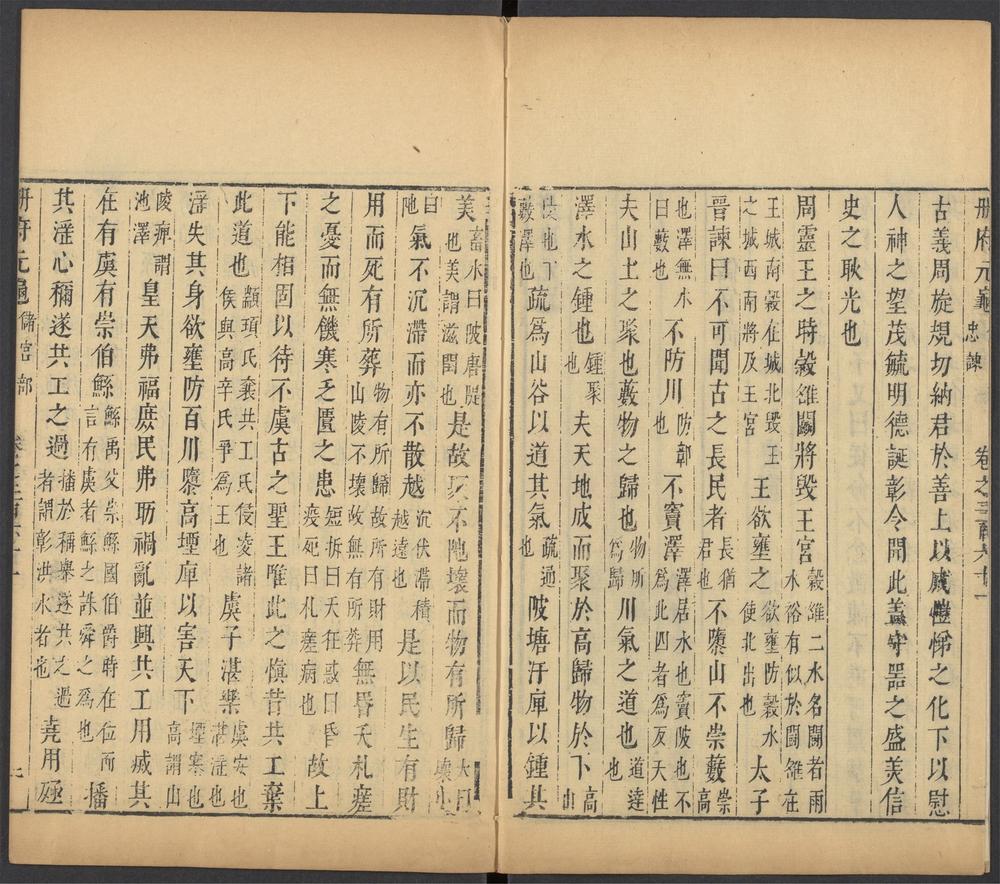 冊府元龜 忠諫 卷之二百六十一
古義周旋規切納君於善上以感愷悌之化下以慰
人神之望茂毓明德誕彰令聞此蓋守器之盛美信
史之耿光也
周靈王之時穀雒鬭將毀王宮 穀雒二水名鬭者雨水俗有似於鬭雒在
王城南穀在城北毀王之城西南將及王宮 王欲壅之 欲壅防穀水使北出也 太子
晉諫曰不可聞古之長民者 長猶君也 不隳山不崇藪 崇高
也澤無水曰藪也 不防川 防鄣也 不竇澤 澤居水也竇陂也不為此四者為反天性
夫山土之聚也藪物之歸也 物所為歸 川氣之道也 道達也
澤水之鍾也 鍾聚 夫天地成而聚於高歸物於下 高山
下藪澤也 疏為山谷以道其氣 疏通也 陂塘汙庳以鍾其
美 畜水曰陂唐隄也美謂滋閏也 是故聚不阤壞而物有所歸 大曰壞小
曰阤 氣不沉滯而亦不散越 沉伏滯積越遠也 是以民生有財
用而死有所葬 物有所歸故所有財用山陵不壞故無有所葬 無昬夭札瘥
之憂而無饑寒乏匱之患 短折曰夭任惑曰昏疫死曰札瘥病也 故上
下能相固以待不虞古之聖王唯此之慎昔共工棄
此道也 顓頊氏衰共工氏侵凌諸侯與高辛氏爭為王也 虞于湛樂 虞安也湛淫也
滛失其身欲壅防百川隳高堙庳以害天下 堙塞也高謂山
陵庳謂池澤 皇天弗福庶民弗助禍亂並興共工用滅其
在有虞有崇伯鯀 鯀禹父崇鯀國伯爵時在位而言有虞者鯀之誅舜之為也 播
其滛心稱遂共工之過 播於稱舉遂共工之過者謂彰洪水者也 堯用殛
冊府元龜 儲宮部 卷之二百六十一 七